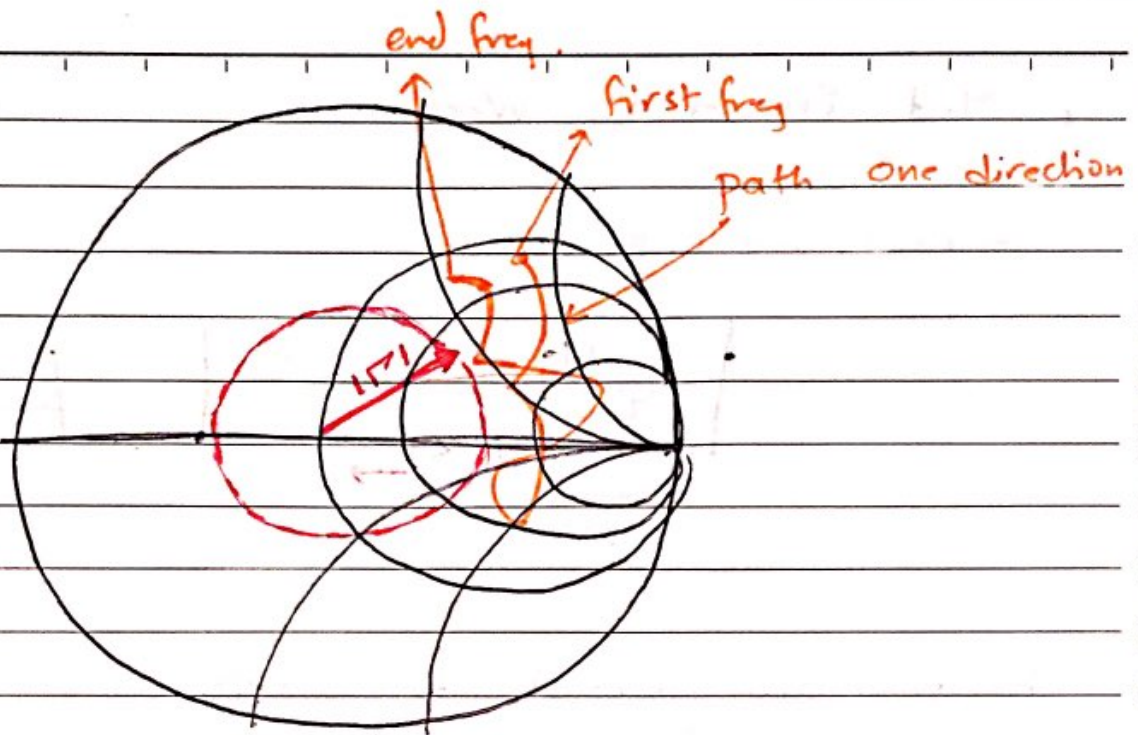 end freq.
first freq
path one direction
|Γ|